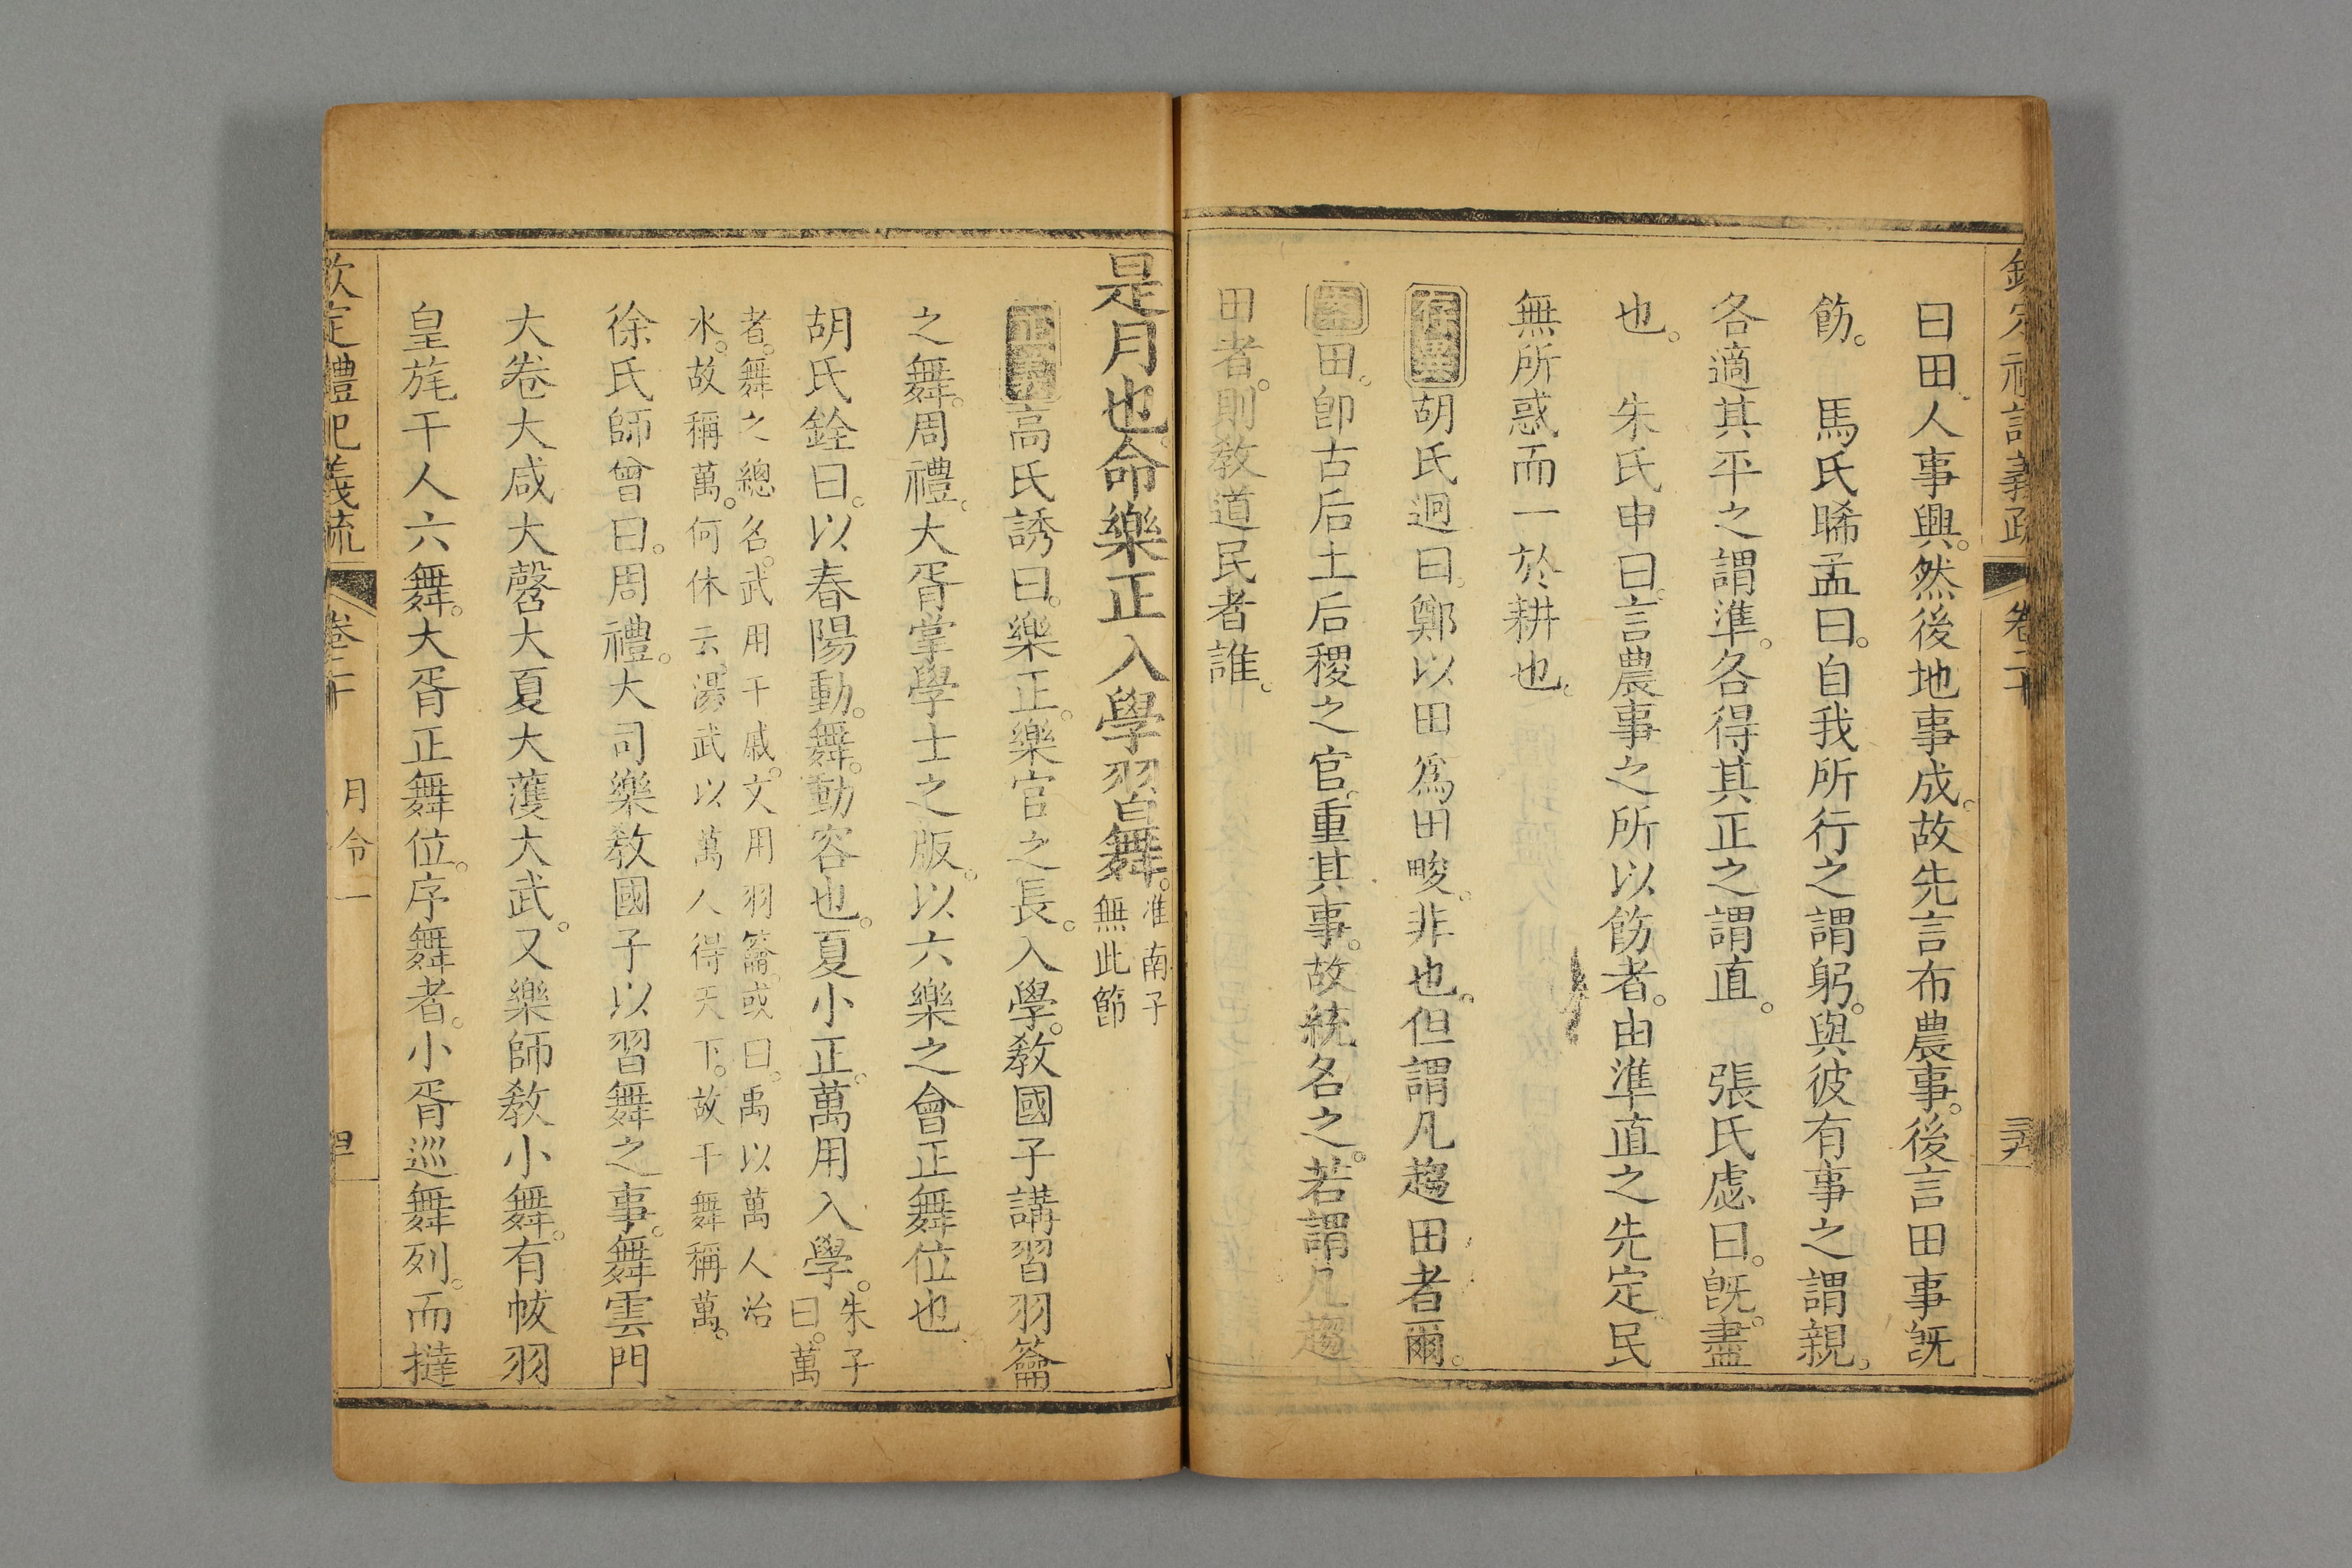 曰田人事興。然後地事成。故先言布農事。後言田事既
飭。　馬氏晞孟曰。自我所行之謂躬。與彼有事之謂親。
各適其平之謂準。各得其正之謂直。　張氏慮曰。既。盡
也。　朱氏申曰。言農事之所以飭者。由準直之先定民
無所惑而一於耕也。
存異胡氏迥曰。鄭以田為田畯。非也。但謂凡趨田者爾。
案田。卽古后土后稷之官。重其事。故統名之。若謂凡趨
田者。則敎道民者誰。
是月也。命樂正入學習舞。淮南子
無此節
正義高氏誘曰。樂正。樂官之長。入學。敎國子講習羽籥
之舞。周禮。大胥掌學士之版。以六樂之會正舞位也。
胡氏銓曰。以春陽動。舞。動容也。夏小正。萬用入學。朱子
曰。萬
者。舞之總名。武用干戚。文用羽籥。或曰。禹以萬人治
水。故稱萬。何休云。湯武以萬人得天下。故干舞稱萬。
徐氏師曾曰。周禮。大司樂敎國子以習舞之事。舞雲門
大卷大咸大磬大夏大濩大武。又樂師敎小舞。有帗羽
皇旄干人六舞。大胥正舞位。序舞者。小胥巡舞列。而撻
欽定禮記義疏
卷二十
月令一